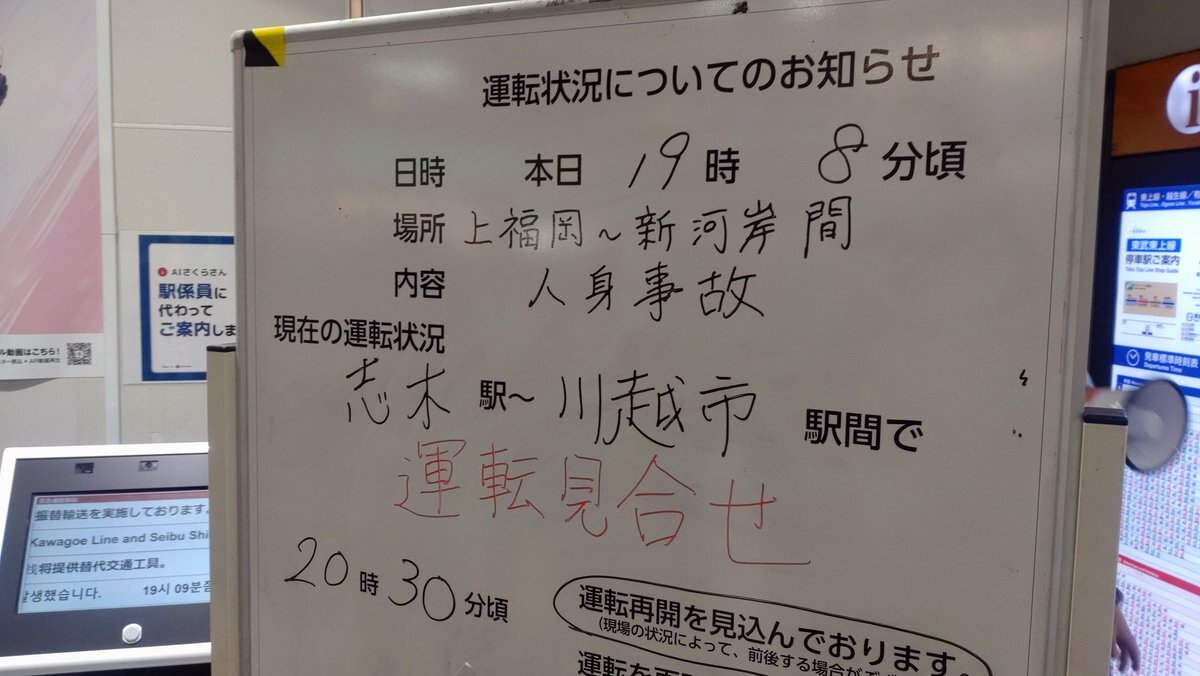 運転状況についてのお知らせ
日時 本日 19 時 8 分頃
場所 上福岡~新河岸 間
内容 人身事故
現在の運転状況
志木 駅~ 川越市 駅間で
運転見合せ
20 時 30 分頃
運転再開を見込んでおります。
(現場の状況によって、前後する場合が
運転を再
AIさくらさん
駅係員に
代わって
ご案内しま
ル動画はこちら!
振替輸送を実施しております。
Kawagoe Line and Seibu Shi
将提供替代交通工具。
생했습니다. 19시 09분
i
東上線・越生線
東武東上線
停車駅ご案内
Tobu Tojo Line Stop Guide
発車標準時刻表
Departures Time